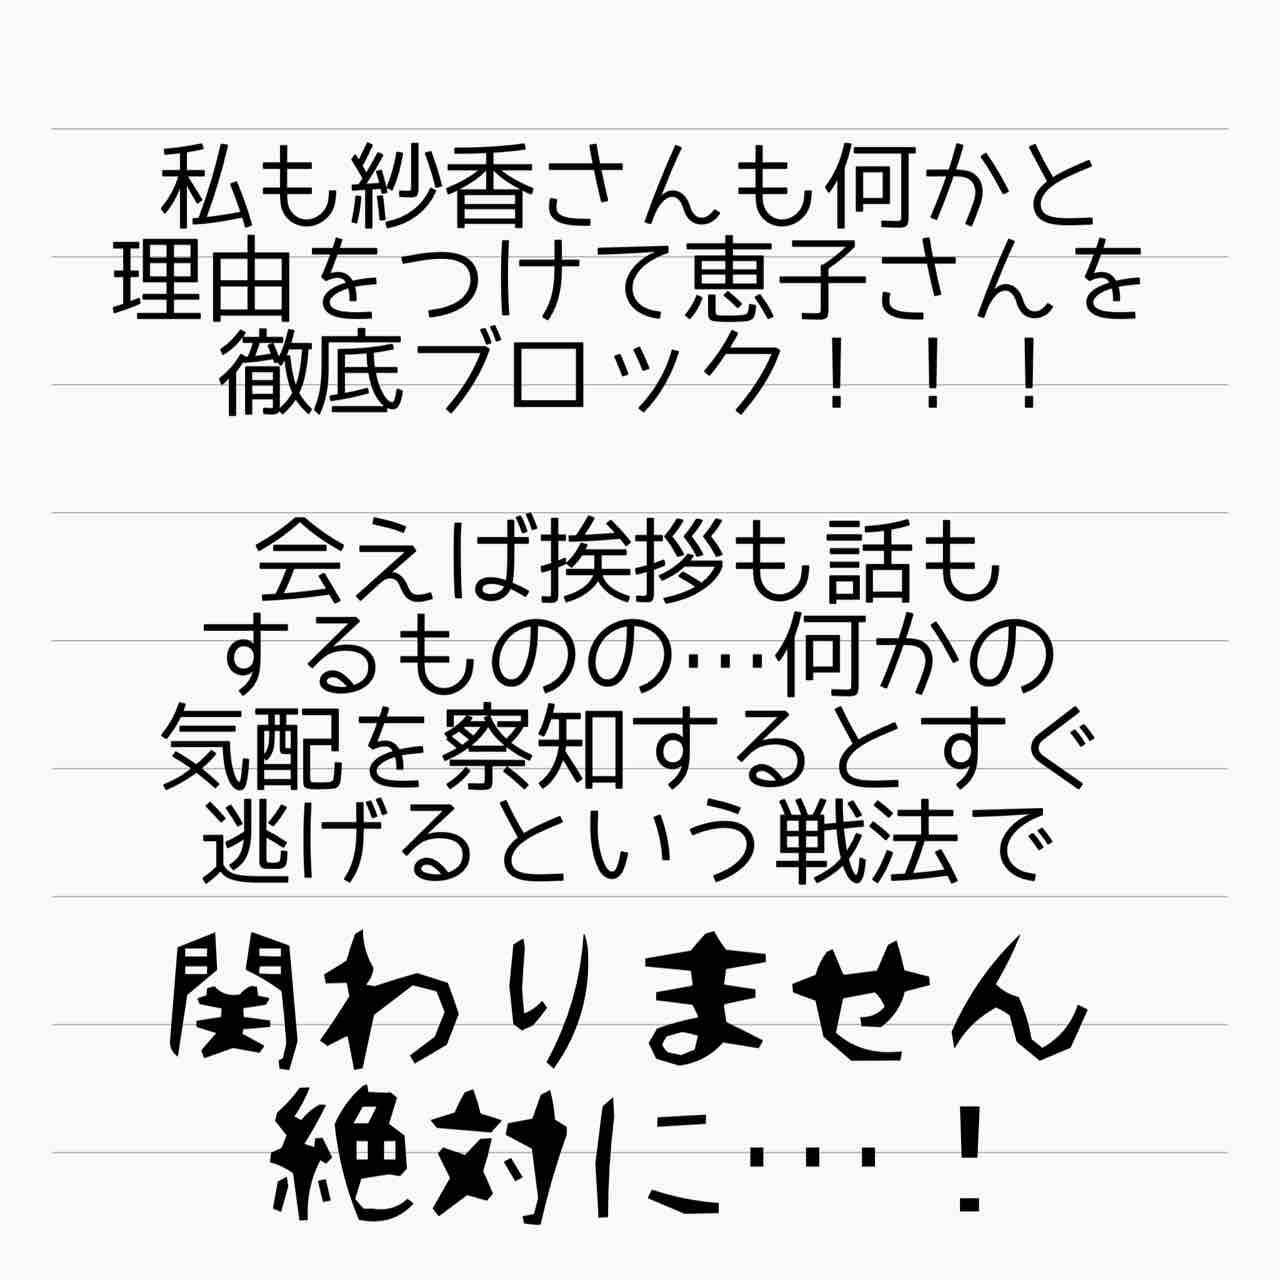 私も紗香さんも何かと
理由をつけて恵子さんを
徹底ブロック！！！
会えば挨拶も話も
するものの…何かの
気配を察知するとすぐ
逃げるという戦法で
関わりません
絶対に…！